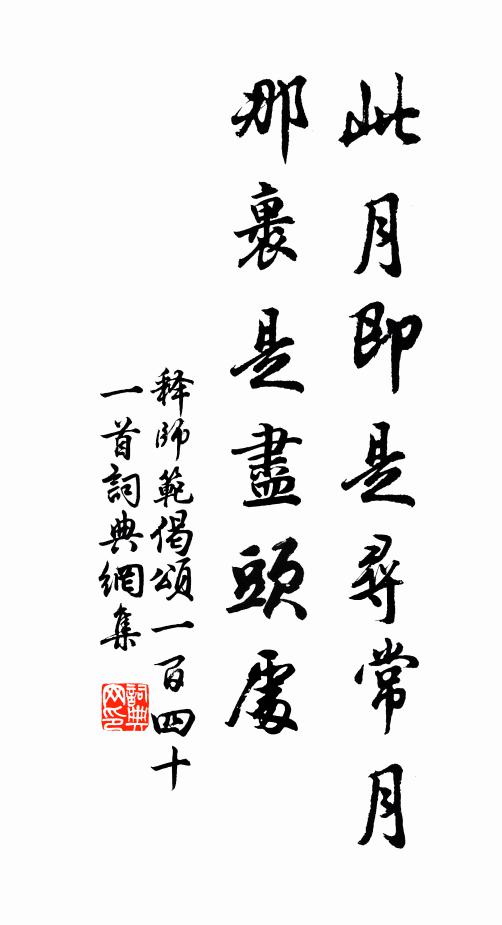 此月即是尋常月
那裏是盡頭處
释師範偈頌一百四十
一首詞典網集
詞典
网印